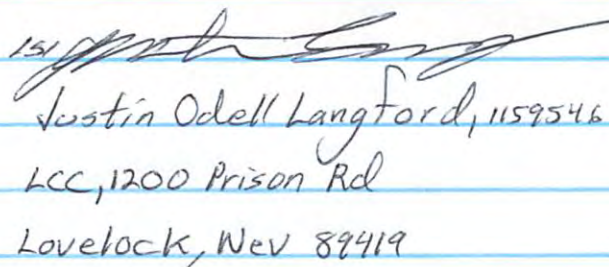 /s/
Justin Odell Langford, 1159546
LCC, 1200 Prison Rd
Lovelock, Nev 89419